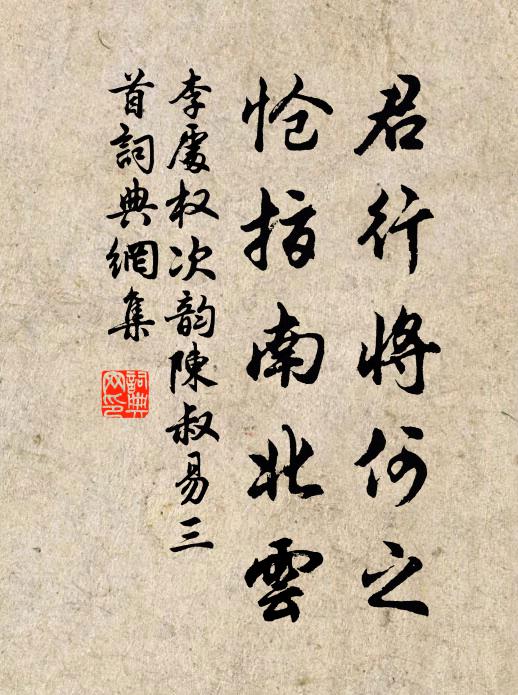 君行将何之
怆指南北雲
李處权次韵陳叔易三
首詞典網集
詞典
网印